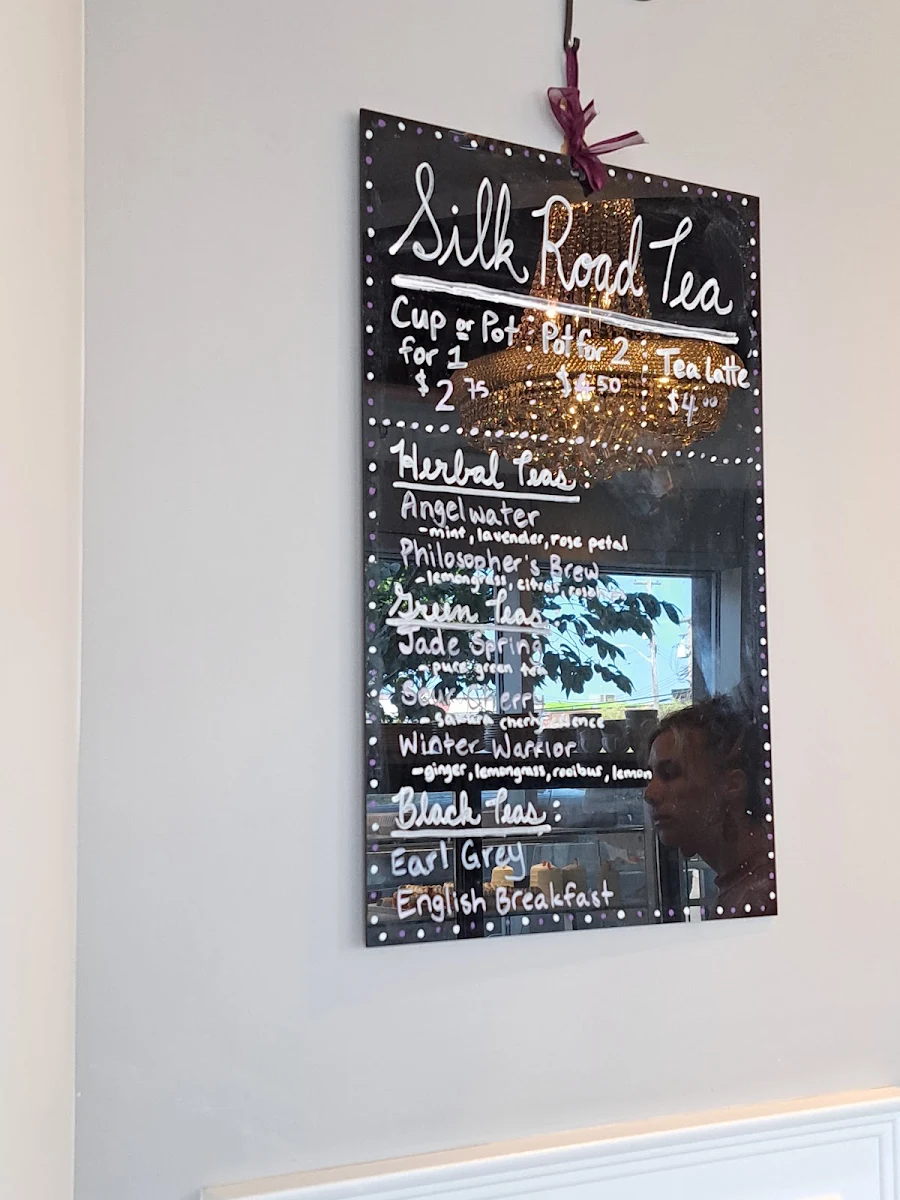 Silk Road Tea
Cup or Pot for 1 $2.75
Pot for 2 $4.50
Tea Latte $4.00
Herbal Teas:
Angelwater
-mint, lavender, rose petal
Philosopher's Brew
-lemongrass, citrus,
Green Teas:
Jade Spring
- pure green tea
Sour Cherry
- sakura cherry
Winter Warrior
-ginger, lemongrass, rooibus, lemon
Black Teas:
Earl Grey
English Breakfast